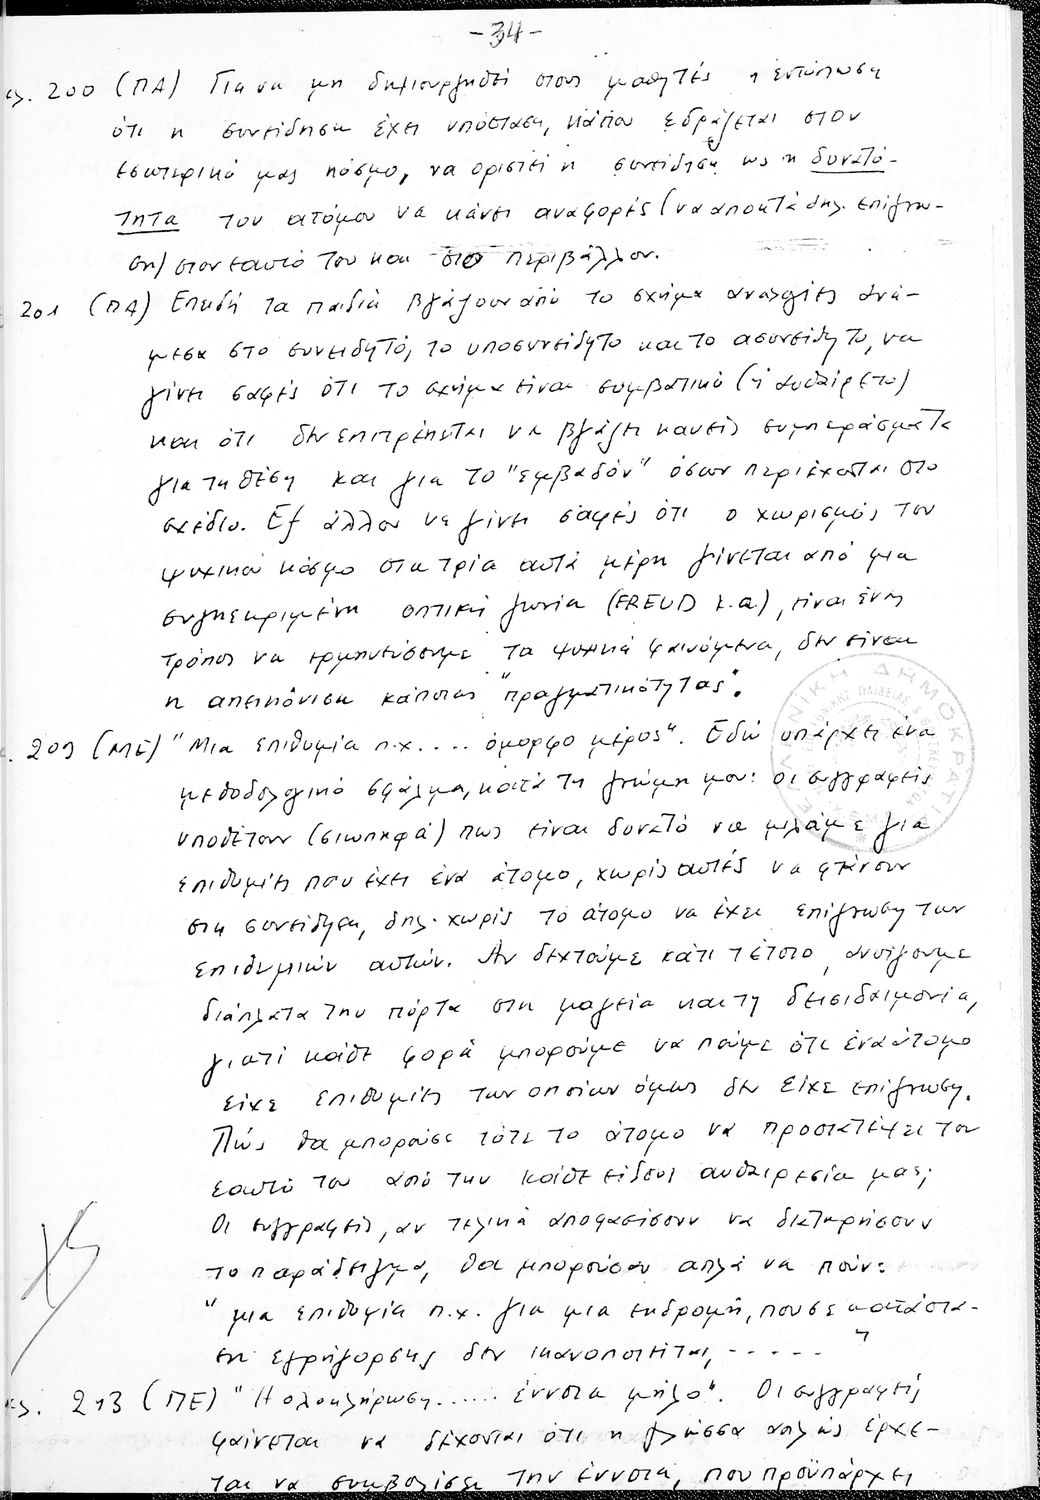 -34-
σελ. 200 (ΠΑ) Για να μη δημιουργηθεί στους μαθητές η εντύπωση
ότι η συνείδηση έχει υπόσταση, κάπου εδράζεται στον
εσωτερικό μας κόσμο, να οριστεί η συνείδηση ως η δυνατό-
τητα του ατόμου να κάνει αναφορές (να αποκτά δηλ. επίγνω-
ση) στον εαυτό του και στο περιβάλλον.
201 (ΠΑ) Επειδή τα παιδιά βγάζουν από το σχήμα αναλογίες ανά-
μεσα στο συνειδητό, το υποσυνείδητο και το ασυνείδητο, να
γίνει σαφές ότι το σχήμα είναι συμβατικό (ή αυθαίρετο)
και ότι δεν επιτρέπεται να βγάζει κανείς συμπεράσματα
για τη θέση και για το "εμβαδόν" όσων περιέχονται στο
σχέδιο. Εξ άλλου να γίνει σαφές ότι ο χωρισμός του
ψυχικού κόσμο στα τρία αυτά μέρη γίνεται από μια
συγκεκριμένη οπτική γωνία (FREUD κ.α), είναι ένας
τρόπος να ερμηνεύσουμε τα ψυχικά φαινόμενα, δεν είναι
η απεικόνιση κάποιας "πραγματικότητας".
209 (ΜΕ) "Μια επιθυμία π.χ.... όμορφο μέρος". Εδώ υπάρχει ένα
μεθοδολογικό σφάλμα, κατά τη γνώμη μου: οι συγγραφείς
υποθέτουν (σιωπηρά) πως είναι δυνατό να μιλάμε για
επιθυμίες που έχει ένα άτομο, χωρίς αυτές να φτάνουν
στη συνείδηση, δηλ. χωρίς το άτομο να έχει επίγνωση των
επιθυμιών αυτών. Αν δεχτούμε κάτι τέτοιο, ανοίγουμε
διάπλατα την πόρτα στη μαγεία και τη δεισιδαιμονία,
γιατί κάθε φορά μπορούμε να πούμε ότι ένα άτομο
είχε επιθυμίες των οποίων όμως δεν είχε επίγνωση.
Πώς θα μπορούσε τότε το άτομο να προστατέψει τον
εαυτό του από την κάθε είδους αυθαιρεσία μας;
Οι συγγραφείς, αν τελικά αποφασίσουν να διατηρήσουν
το παράδειγμα, θα μπορούσαν απλά να πούν:
"μια επιθυμία π.χ. για μια εκδρομή, που σε κατάστα-
ση εγρήγορσης δεν ικανοποιείται, ....."
σελ. 213 (ΠΕ) "Η ολοκλήρωση...... έννοια μήλο". Οι συγγραφείς
φαίνεται να δέχονται ότι η γλώσσα απλώς έρχε-
ται να συμβολίσει την έννοια, που προϋπάρχει
ΕΛΛΗΝΙΚΗ ΔΗΜΟΚΡΑΤΙΑ